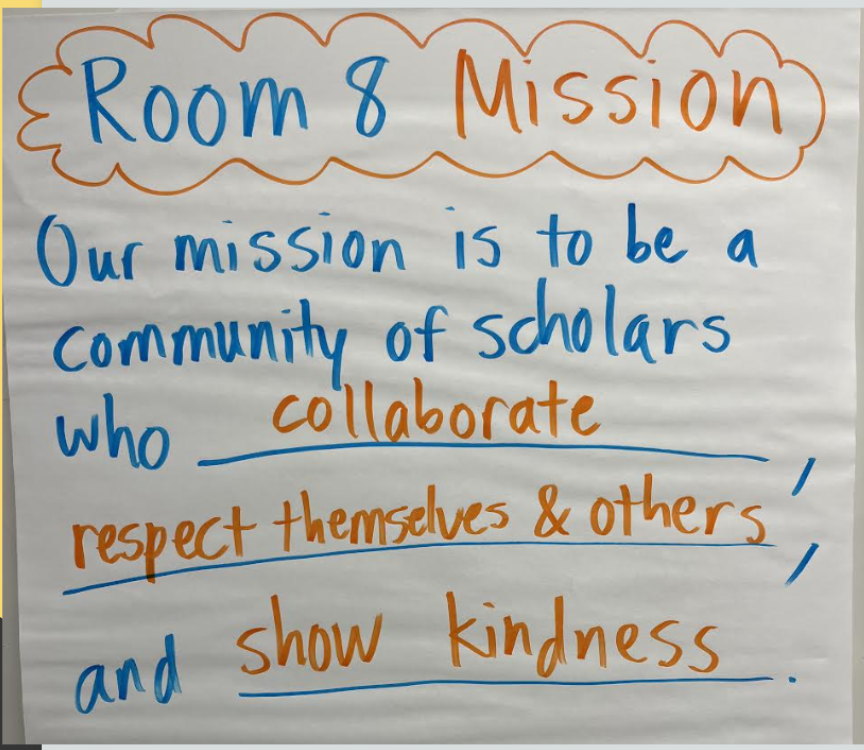 Room 8 Mission
Our mission is to be a
community of scholars
who collaborate,
respect themselves & others,
and show kindness.